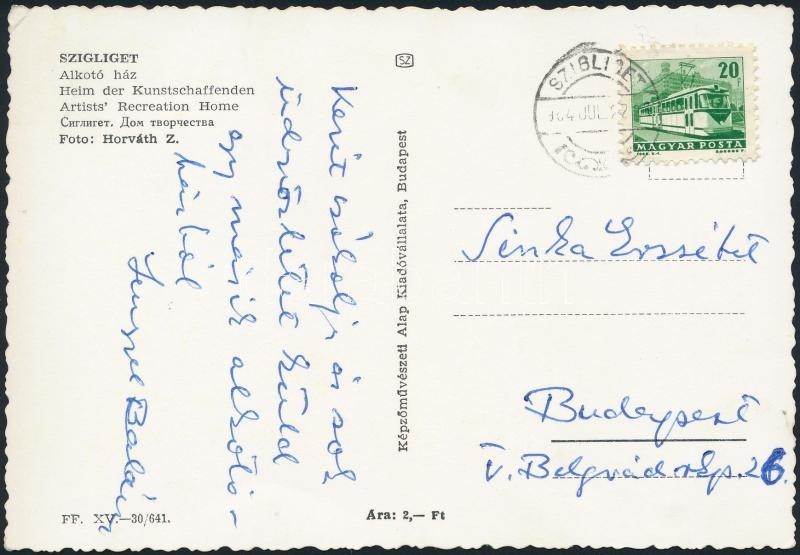 SZIGLIGET
Alkotó ház
Heim der Kunstschaffenden
Artists' Recreation Home
Сиглигет. Дом творчества
Foto: Horváth Z.
Kezit csókolja és sok
üdvözletet küld
egy másik alkotó-
házból
Lengyel Balázs
FF. XV.—30/641.
Ara: 2,— Ft
Képzőművészeti Alap Kiadóvállalata, Budapest
SZ
SZIGLIGET
20 f
MAGYAR POSTA
Sinka Erzsébet
Budapest
V. Belgrád rkp. 26.